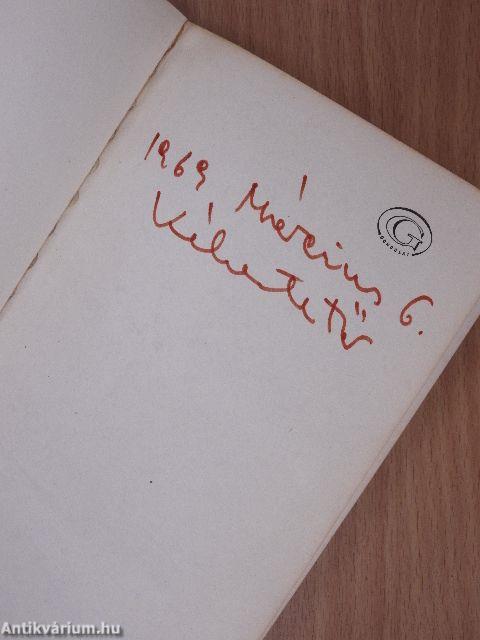 1969 Március 6.
Kékestető
G
GONDOLAT
Antikvárium.hu